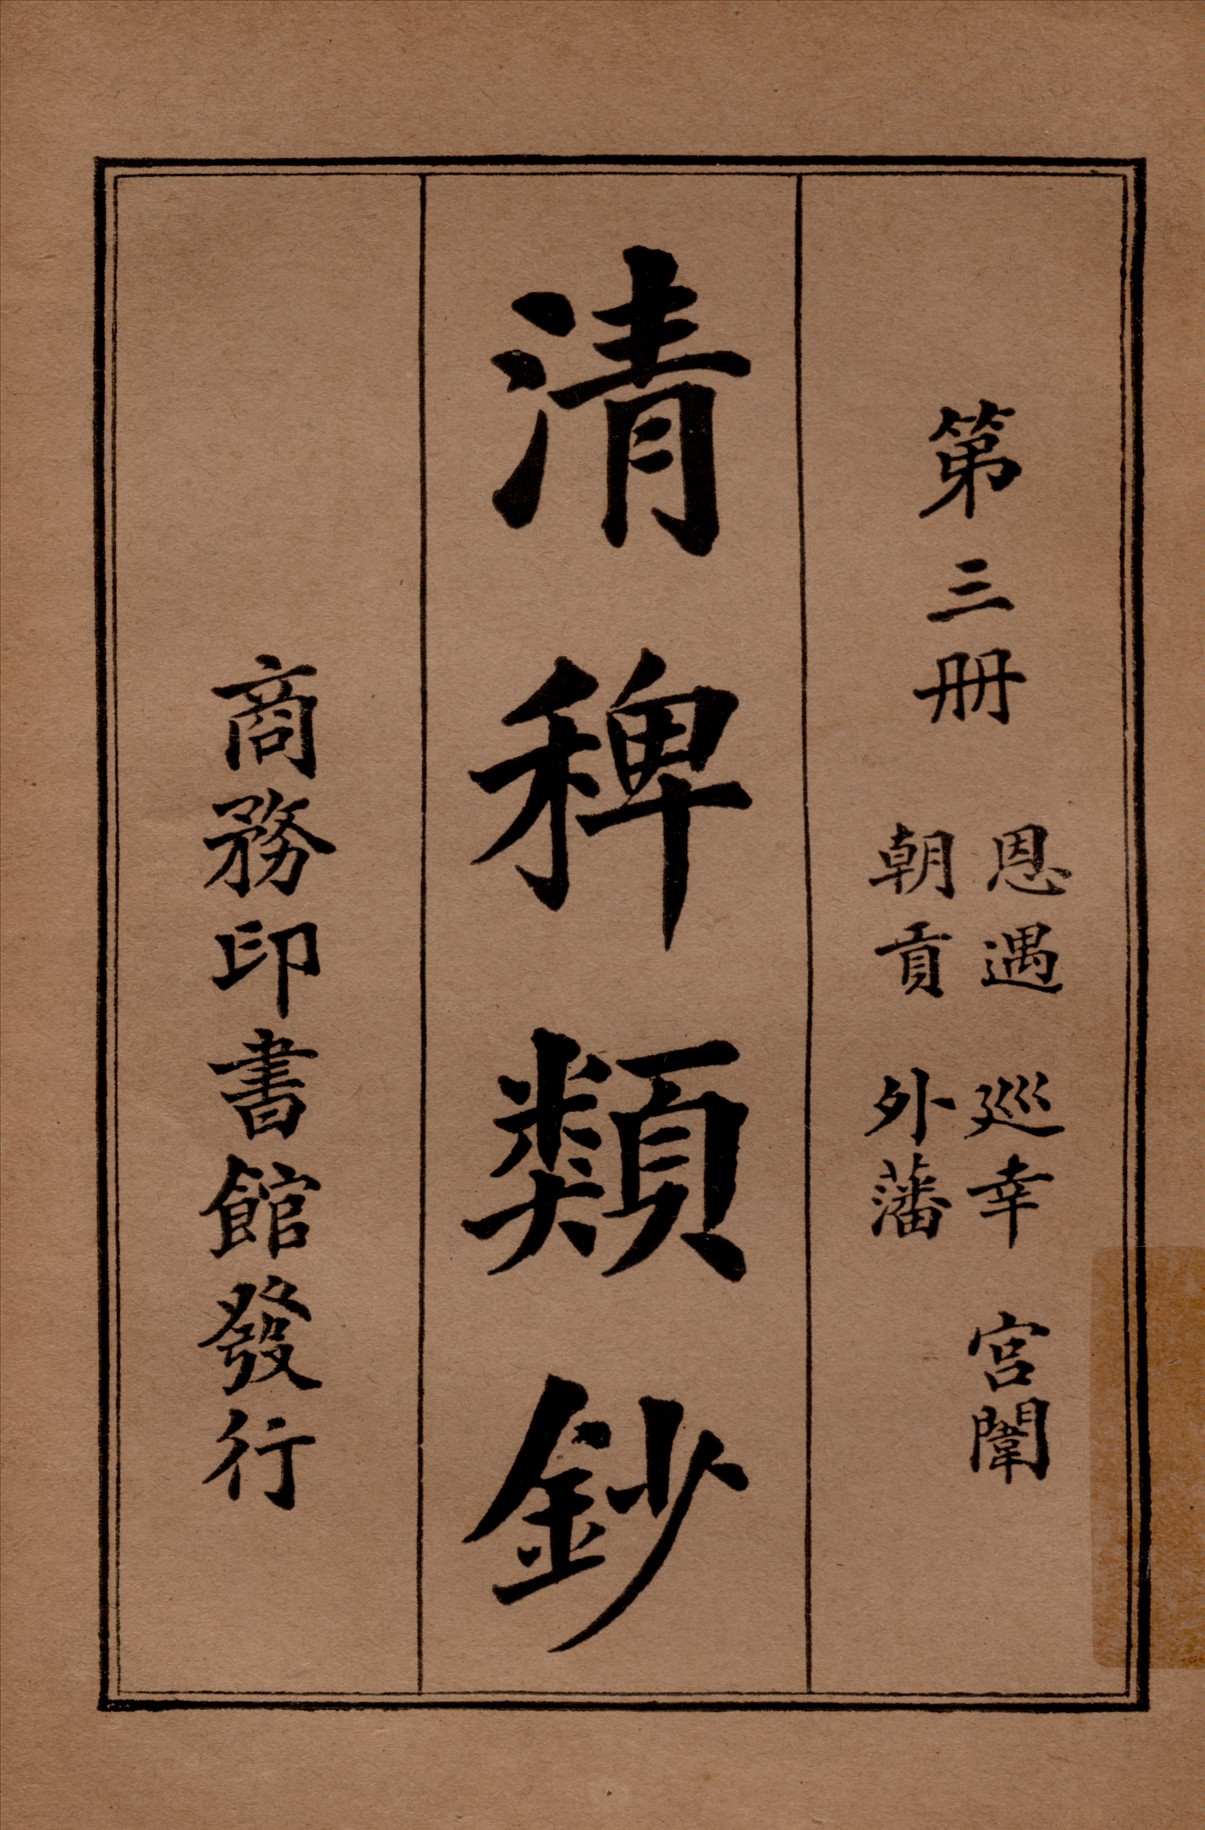 第三册
恩遇 巡幸 宮闈
朝貢 外藩
清稗類鈔
商務印書館發行